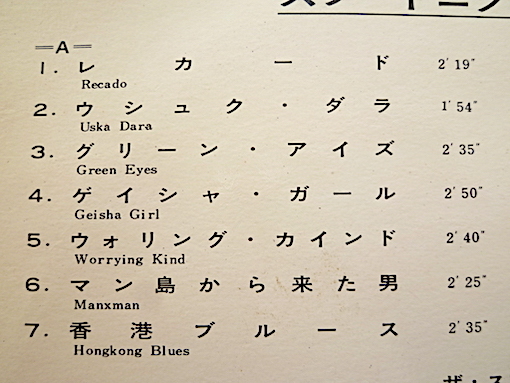 =A=
1. レカード 2′19″
Recado
2. ウシュク・ダラ 1′54″
Uska Dara
3. グリーン・アイズ 2′35″
Green Eyes
4. ゲイシャ・ガール 2′50″
Geisha Girl
5. ウォリング・カインド 2′40″
Worrying Kind
6. マン島から来た男 2′25″
Manxman
7. 香港ブルース 2′35″
Hongkong Blues
ザ・ス